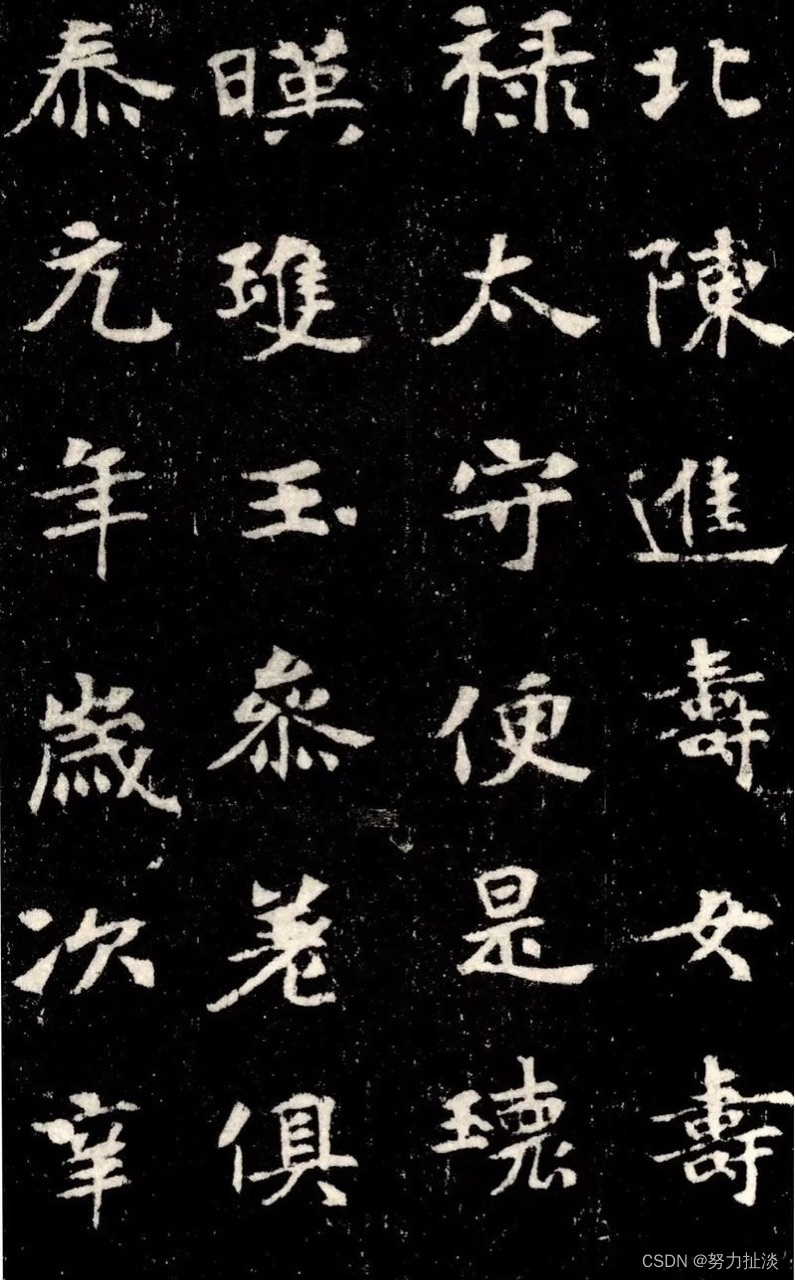 北陳進壽女壽
祿太守便是瓌
暎璡玉叅差俱
泰元年歲次辛
CSDN @努力扯淡